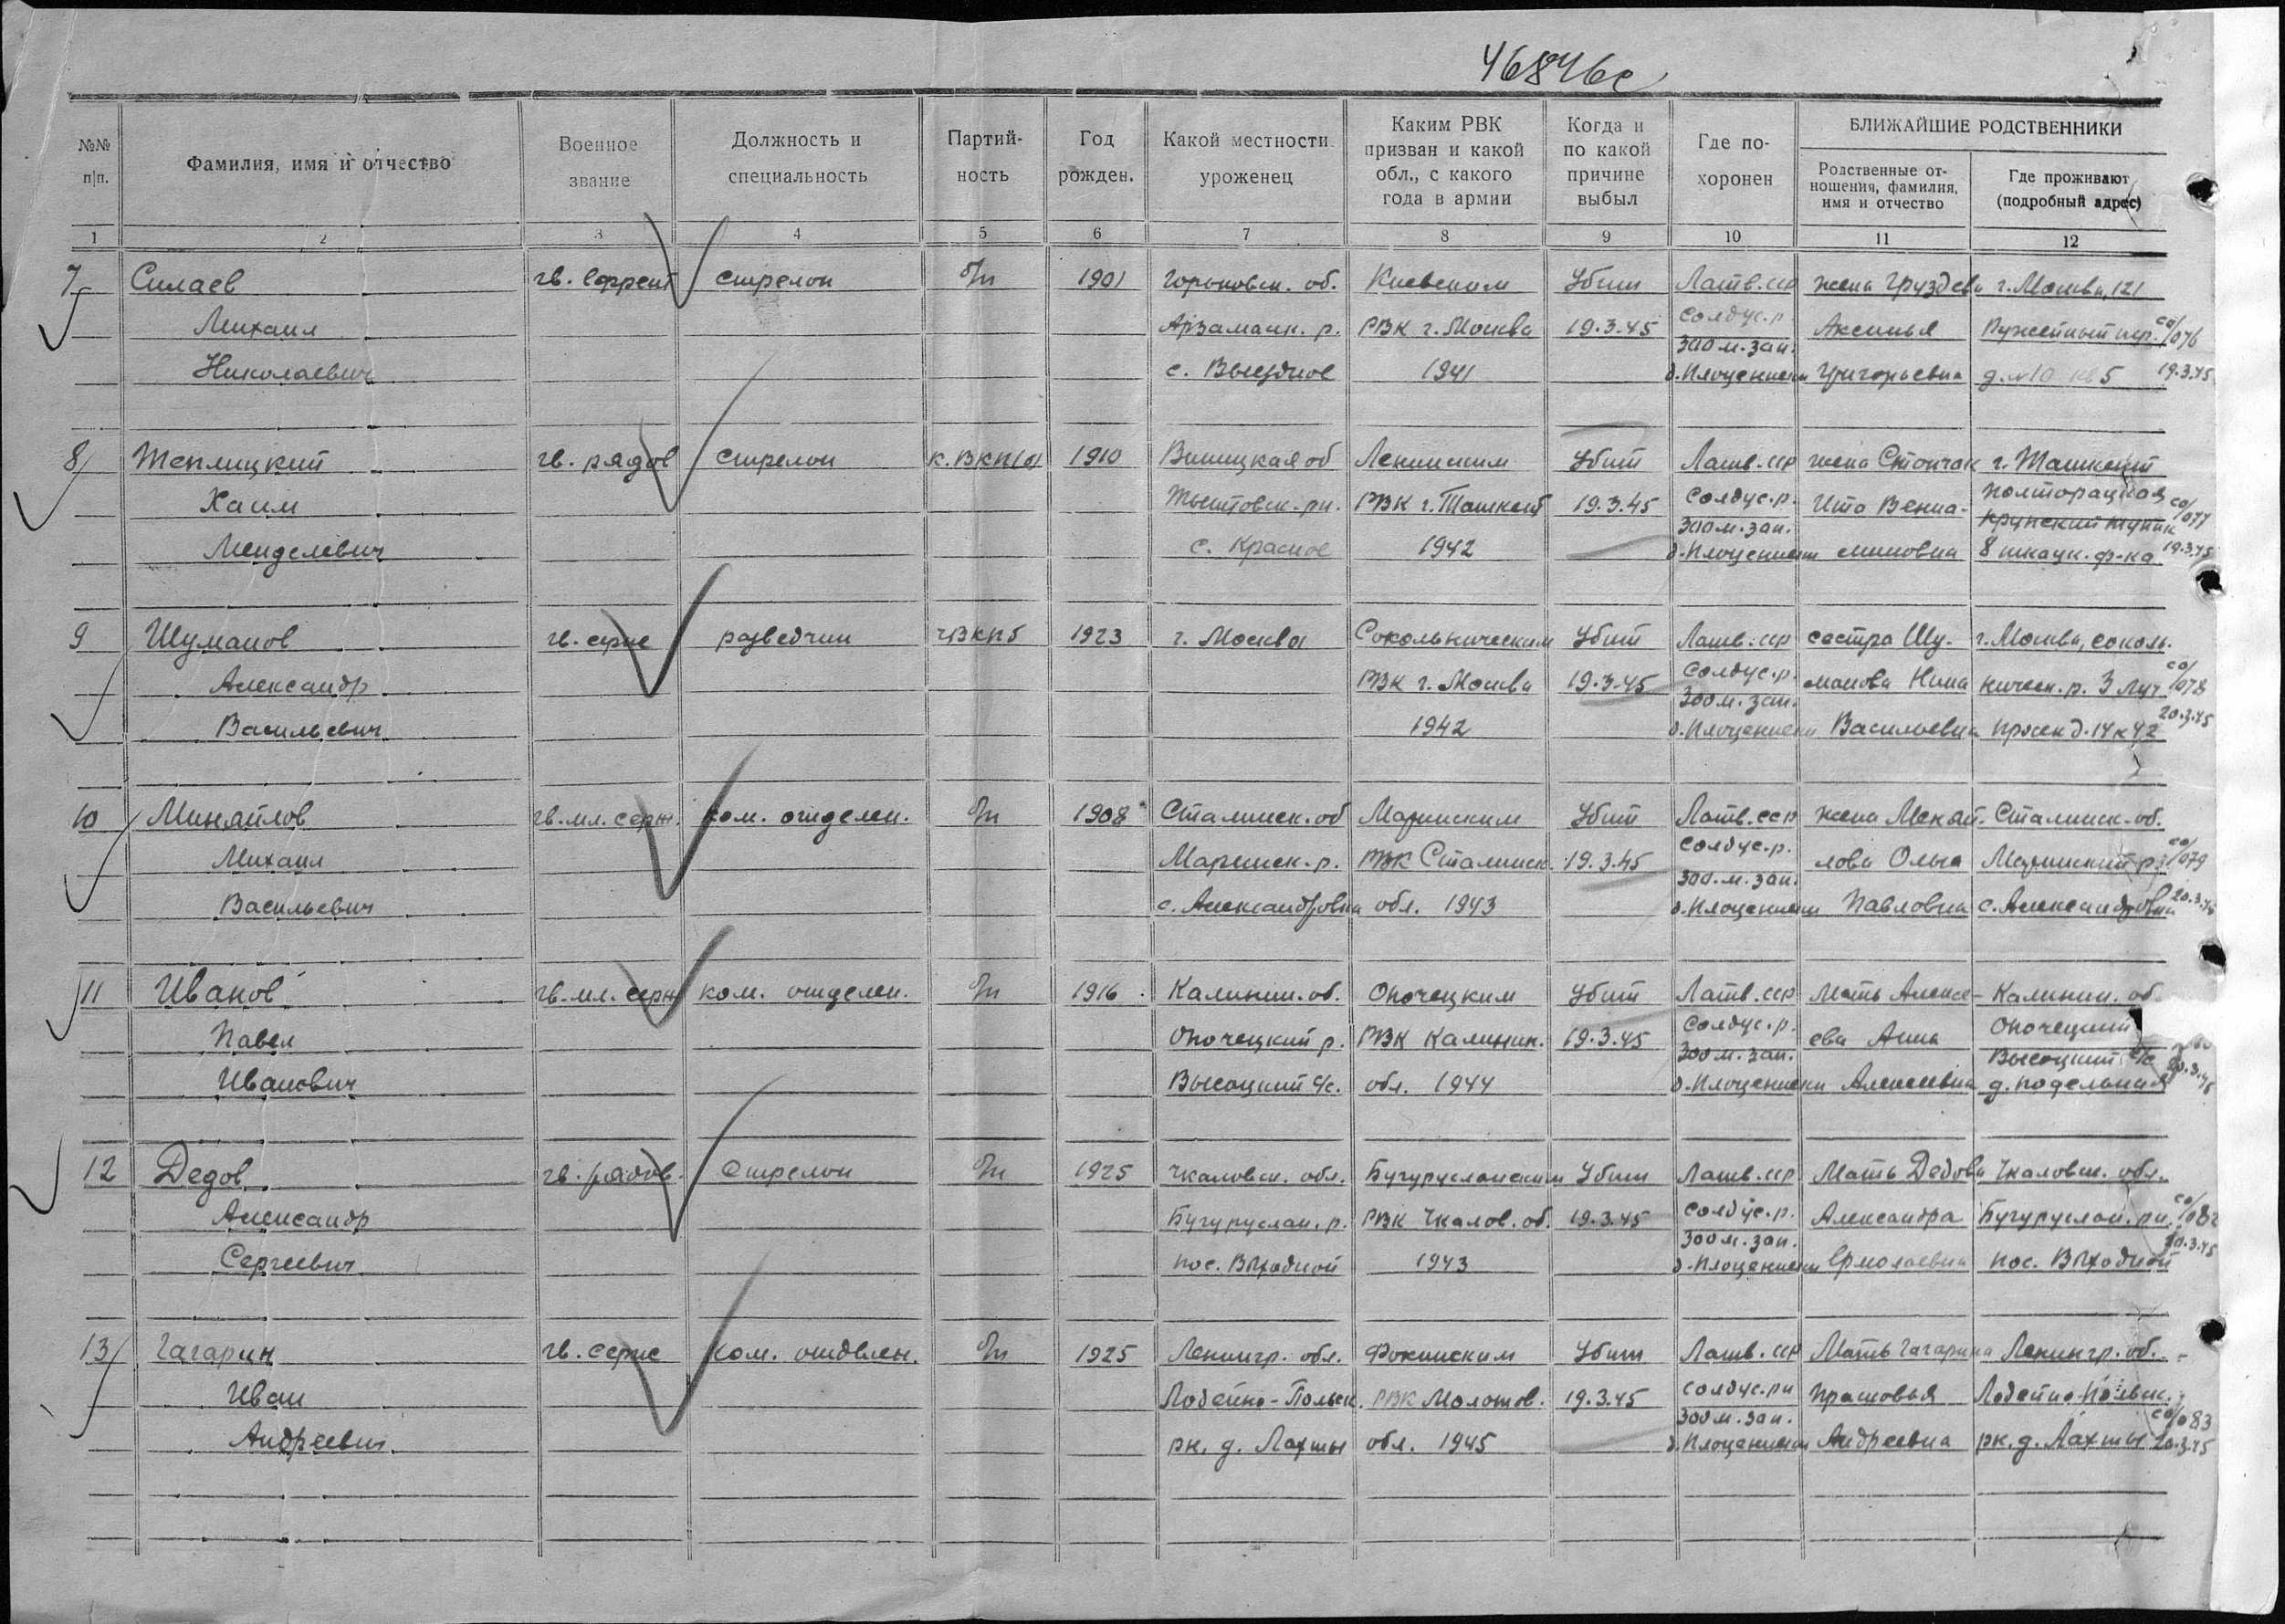 46846с
№№ п|п.
Фамилия, имя и отчество
Военное звание
Должность и специальность
Партий-ность
Год рожден.
Какой местности уроженец
Каким РВК призван и какой обл., с какого года в армии
Когда и по какой причине выбыл
Где по-хоронен
БЛИЖАЙШИЕ РОДСТВЕННИКИ
Родственные от-ношения, фамилия, имя и отчество
Где проживают (подробный адрес)
1 2 3 4 5 6 7 8 9 10 11 12
7 Силаев гв. ефрейт стрелок б/п 1901 Горьковск. об. Киевским Убит Латв. сср жена Груздева г. Москва, 121
Михаил Арзамаск. р. РВК г. Москва 19.3.45 Салдус. р. Аксинья Ружейный пер. со/076
300 м. зап.
Николаевич с. Выездное 1941 д. Плоцениеки Григорьевна д. №10 кв 5 19.3.45
8 Теплицкий гв. рядов стрелок к. ВКП(б) 1910 Виницкая об Ленинским Убит Латв. сср жена Стончак г. Ташкент
Хаим РВК г. Ташкент 19.3.45 Салдус. р. Ита Вениа- Полторацкая со/077
300 м. зап. тупик
Менделевич с. Красное 1942 д. Плоцениеки миновна 8 ф-ка 19.3.45
9 Шуманов гв. серж разведчик чВКПб 1923 г. Москва Сокольническим Убит Латв. сср сестра Шу- г. Москва, соколь-
Александр РВК г. Москва 19.3.45 Салдус. р. манова Нина ническ. р. 3 Луч со/078
300 м. зап.
Васильевич 1942 д. Плоцениеки Васильевна просек д. 14 к 42 20.3.45
10 Михайлов гв. мл. серж. ком. отделен. б/п 1908 Сталинск. об Марьинским Убит Латв. сср жена Михай- Сталинск. об.
Михаил Марьинск. р. РВК Сталинск. 19.3.45 Салдус. р. лова Ольга Марьинский р. со/079
300. м. зап.
Васильевич с. Александровка обл. 1943 д. Плоцениеки Павловна с. Александровка 20.3.45
11 Иванов гв. мл. серж ком. отделен. б/п 1916 Калинин. об. Опочецким Убит Латв. сср Мать Алексе- Калинин. об.
Павел Опочецкий р. РВК Калинин. 19.3.45 Салдус. р. ева Анна Опочецкий
300 м. зап. Высоцкий с/с
Иванович Высоцкий с/с. обл. 1944 д. Плоцениеки Алексеевна д. Подельная 20.3.45
12 Дедов гв. рядов. стрелок б/п 1925 Чкаловск. обл. Бугурусланским Убит Латв. сср Мать Дедова Чкаловск. обл.
Александр Бугуруслан. р. РВК Чкалов. об. 19.3.45 Салдус. р. Александра Бугуруслан. рн. со/082
300 м. зап.
Сергеевич пос. Выходной 1943 д. Плоцениеки Ермолаевна пос. Выходной 20.3.45
13 Гагарин гв. серж ком. отделен. б/п 1925 Ленингр. обл. Фокинским Убит Латв. сср Мать Гагарина Ленингр. об.
Иван Лодейно-Польск. РВК Молотов. 19.3.45 Салдус. рн Прасковья Лодейно-Польск.
300 м. зап. со/083
Андреевич рн. д. Лахты обл. 1945 д. Плоцениеки Андреевна рн. д. Лахты 20.3.45